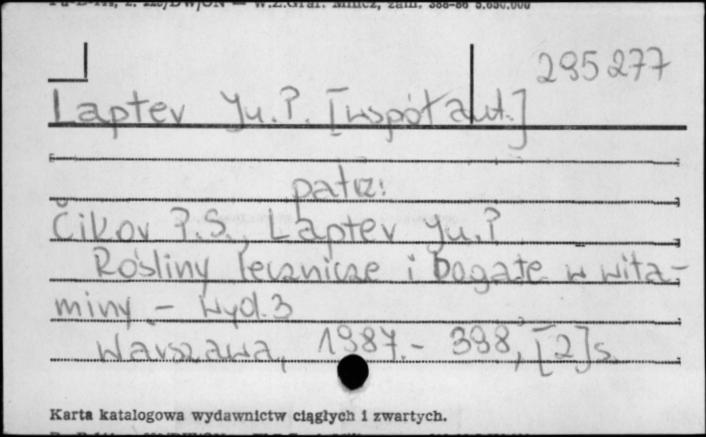 295277
Laptev Yu.P. [współaut.]
patrz:
Čikov P.S., Laptev Yu.P
Rośliny lecznicze i bogate w wita-
miny. - Wyd. 3
Warszawa, 1987. - 398, [2] s.
Karta katalogowa wydawnictw ciągłych i zwartych.